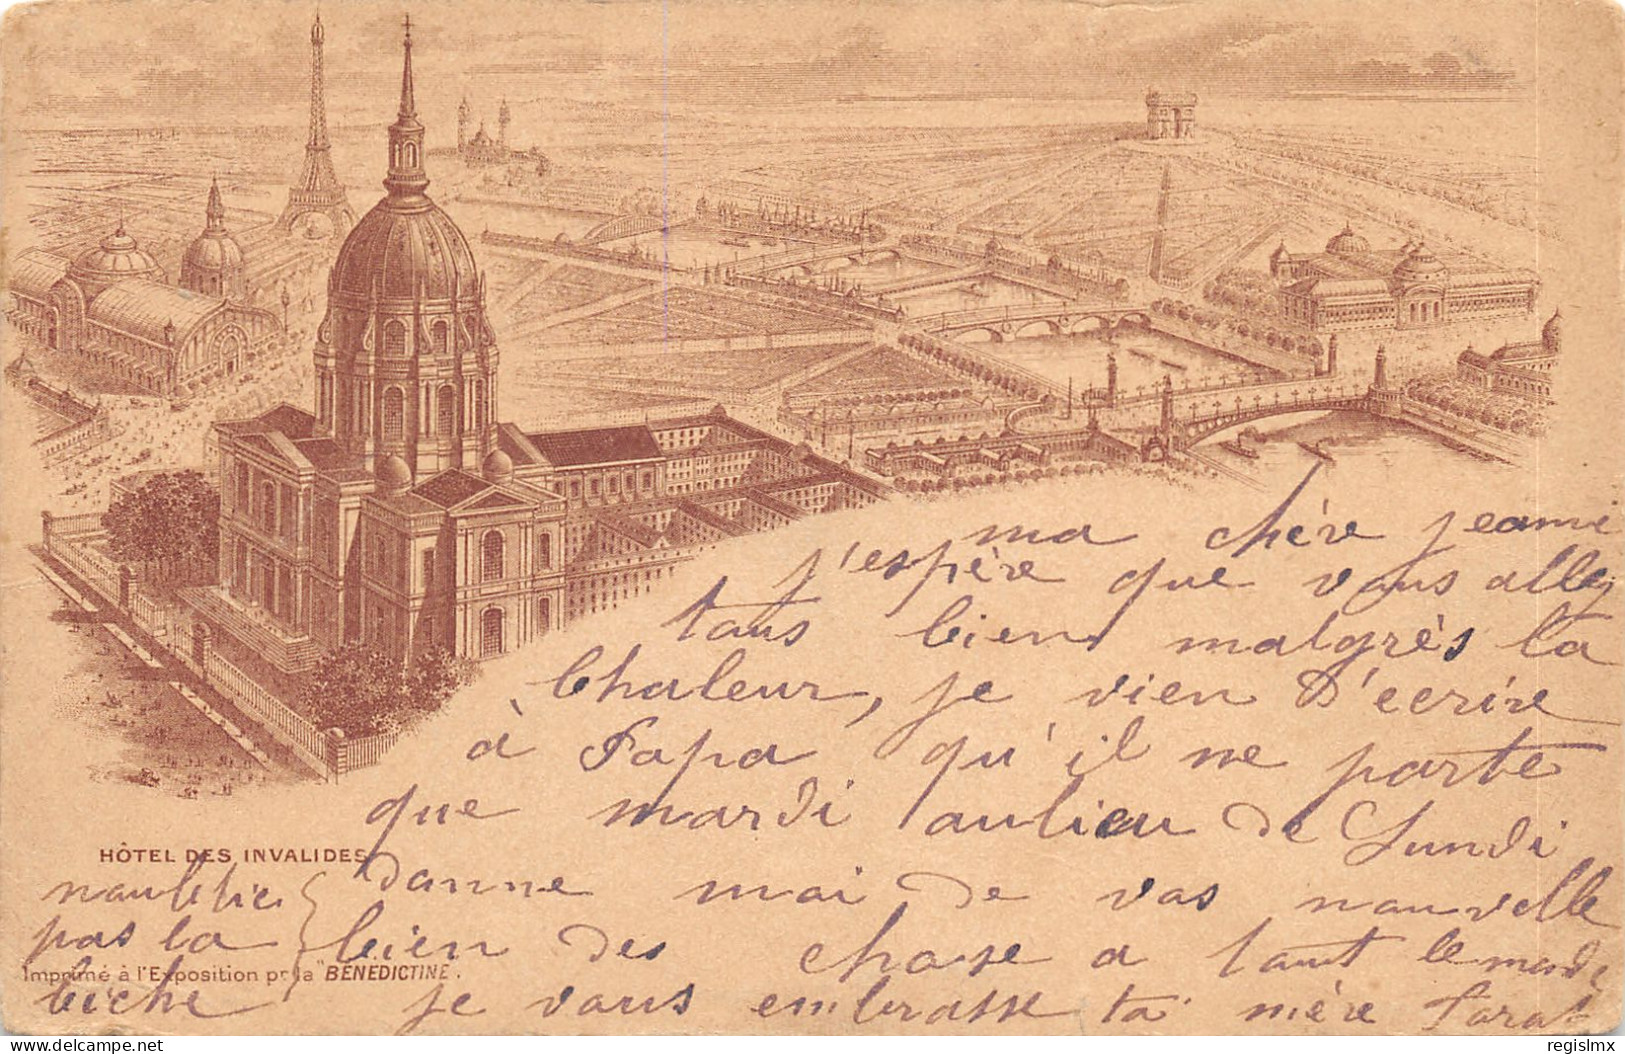 ma chère jeanne
j'espère que vous allez
tous bien malgrès la
Chaleur, je vien d'ecrire
à Papa qu'il ne parte
que mardi aulieu de Lundi
HÔTEL DES INVALIDES
donne moi de vos nouvelle
bien des chose a tout le monde
je vous embrasse ta mère
noublie
pas la
biche
Imprimé à l'Exposition pr la "BÉNÉDICTINE.
delcampe.net
regislmx